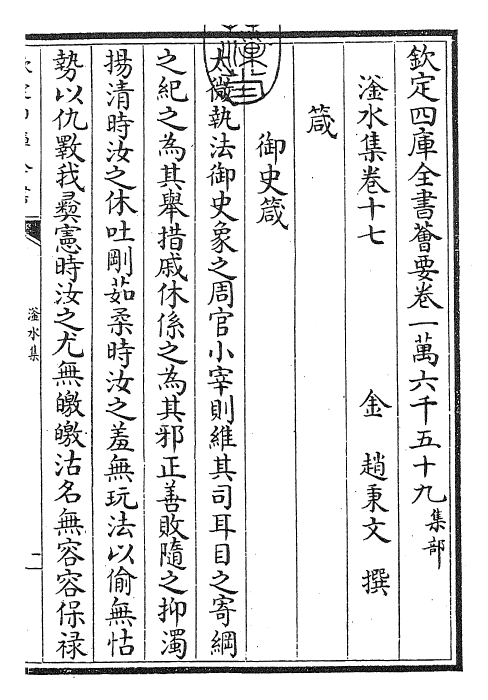 欽定四庫全書薈要卷一萬六千五十九 集部
滏水集卷十七
金 趙秉文 撰
箴
御史箴
太微執法御史象之周官小宰則維其司耳目之寄綱
之紀之為其舉措戚休係之為其邪正善敗隨之抑濁
揚清時汝之休吐剛茹柔時汝之羞無玩法以偷無怙
勢以仇斁我彛憲時汝之尤無皦皦沽名無容容保禄
滏水集